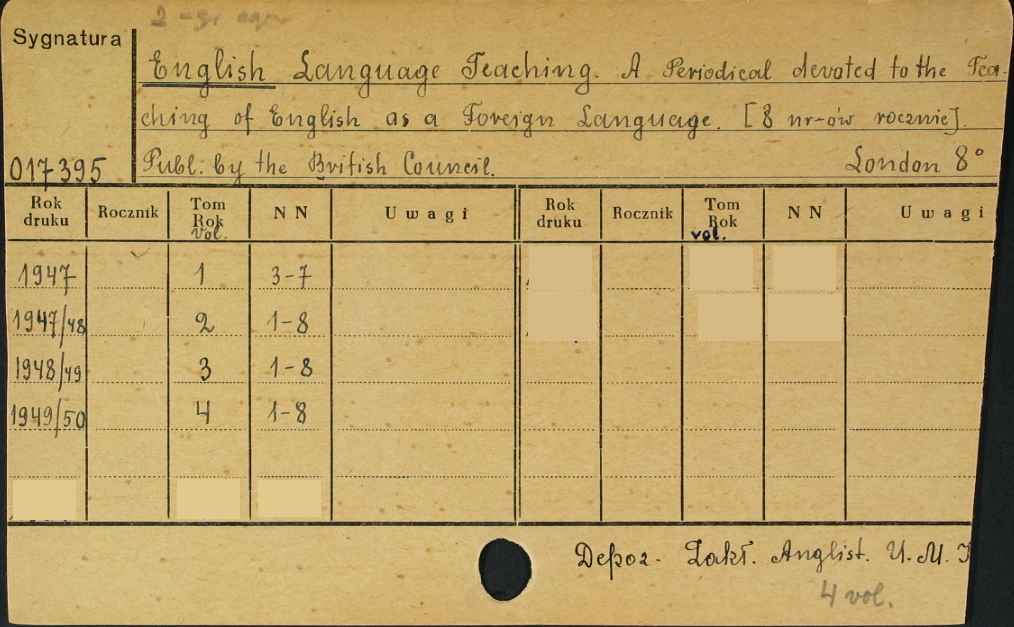 Sygnatura
English Language Teaching. A Periodical devoted to the Tea-
ching of English as a Foreign Language. [8 nr-ów rocznie].
017395 Publ. by the British Council. London 8°
Rok druku Rocznik Tom Rok vol. NN Uwagi Rok druku Rocznik Tom Rok vol. NN Uwagi
1947 1 3-7
1947/48 2 1-8
1948/49 3 1-8
1949/50 4 1-8
Depoz. Zakł. Anglist. U.M.
4 vol.